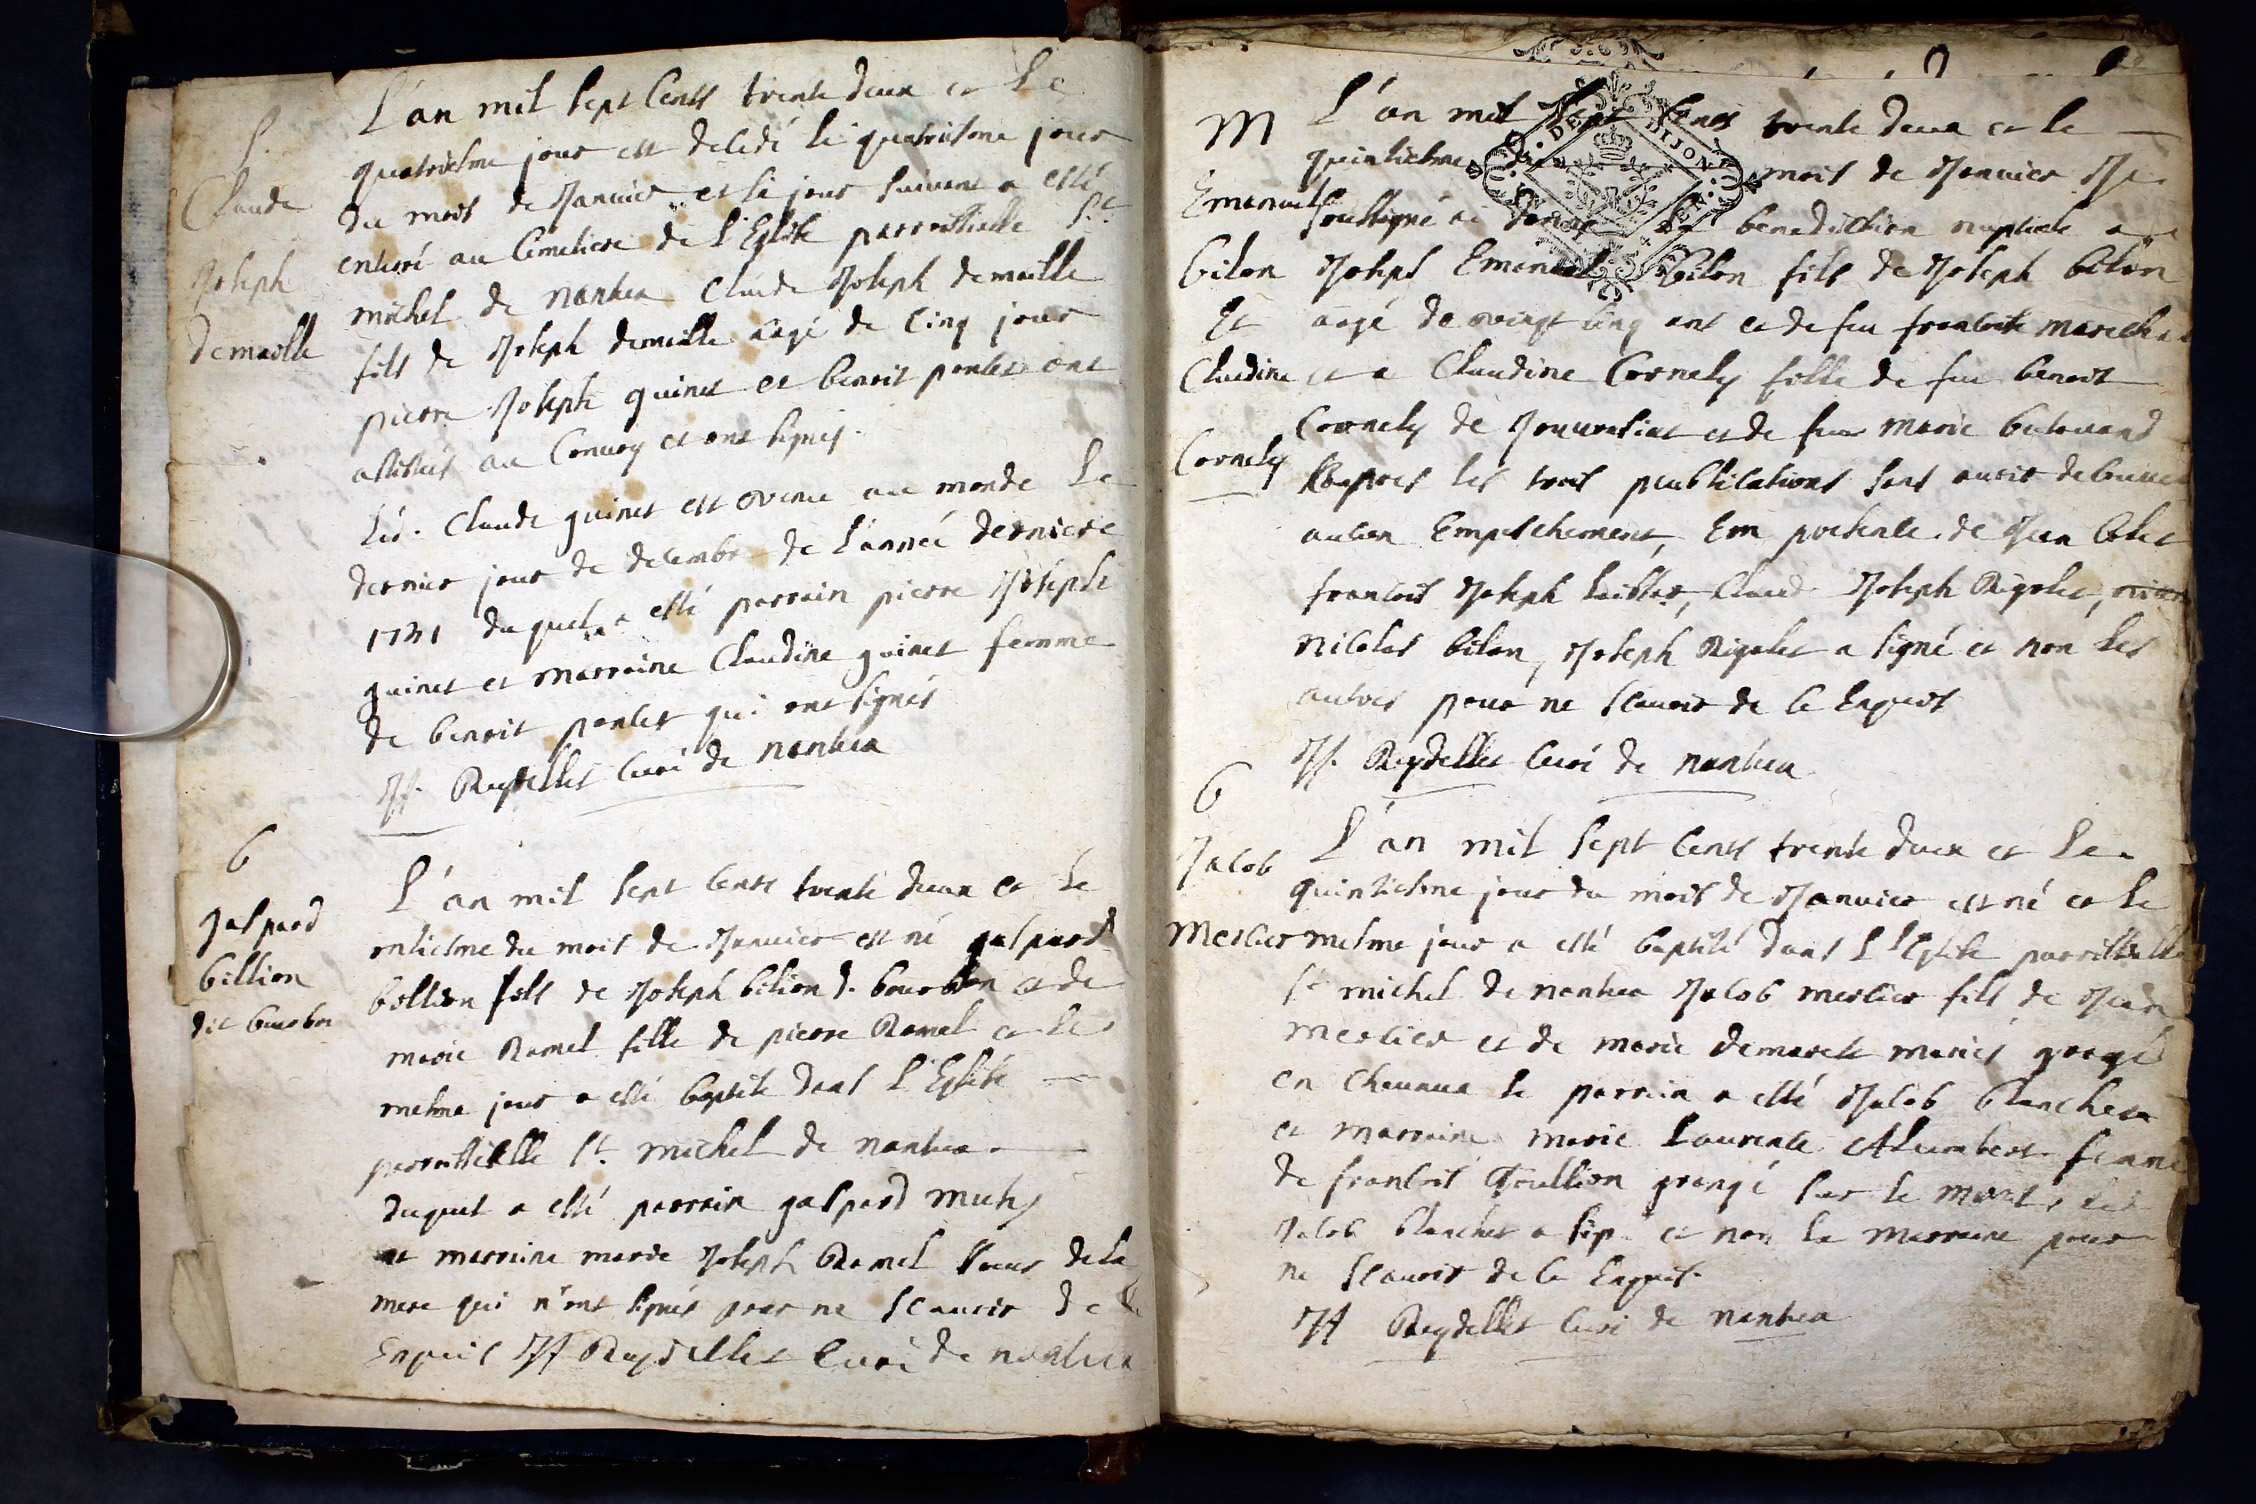 S.
Claude
Joseph
demaille
L'an mil sept cents trente deux et le
quatriesme jour est decedé le quatriesme jour
du mois de Janvier et le jour suivant a esté
enterré au Cimetiere de l'Eglise parroissialle St.
michel de nantua Claude Joseph demaille
fils de Joseph demaille aagé de Cinq jours
pierre Joseph guinet et benoit ponlet ont
assistés au Convoy et ont signés.
Led. Claude guinet est venu au monde le
dernier jour de decembre de l'année derniere
1731 duquel a esté parrain pierre Joseph
guinet et marraine Claudine guinet femme
de benoit ponlet qui ont signés
JF. Reydellet Curé de nantua
b
gaspard
billion
dit bourbon
L'an mil sept cents trente deux et le
onziesme du mois de Janvier est né gaspard
billion fils de Joseph bilion d. bourbon et de
marie Ramel fille de pierre Ramel et le
mesme jour a esté baptisé dans l'Eglise
parroissialle St. michel de nantua
duquel a esté parrain gaspard
et marraine marie Joseph Ramel soeur de la
mere qui n'ont signés pour ne scauoir de ce
Enquis JF Reydellet Curé de nantua
M
Emanuel
bilon
Et
Claudine
Cornely
L'an mil sept cents trente deux et le
quinziesme du mois de Janvier Je
soussigné ai donné la benediction nuptiale a
Joseph Emanuel bilon fils de Joseph bilon
aagé de vingt cinq ans et de feu francoise
et a Claudine Cornely fille de feu benoit
Cornely de et de feu marie
apres les trois publications sans auoir decouuert
aucun Empeschement, Em presence de Jean
francois Joseph Claude Joseph Rigolet,
nicolas bilon, Joseph Rigolet a signé et non les
autres pour ne scauoir de ce Enquis
JF. Reydellet Curé de nantua
b
Jacob
Mercier
L'an mil sept cents trente deux et le
quinziesme jour du mois de Janvier est né et le
mesme jour a esté baptisé dans l'Eglise parroissialle
St michel de nantua Jacob mercier fils de Jean
mercier et de marie mariés grangé
en le parrain a esté Jacob blanchet
et marraine marie Laurence femme
de francois grangé sur le mont, led
Jacob blanchet a sig. et non la marraine pour
ne scauoir de ce Enquis.
JF Reydellet Curé de nantua
DE DIJON